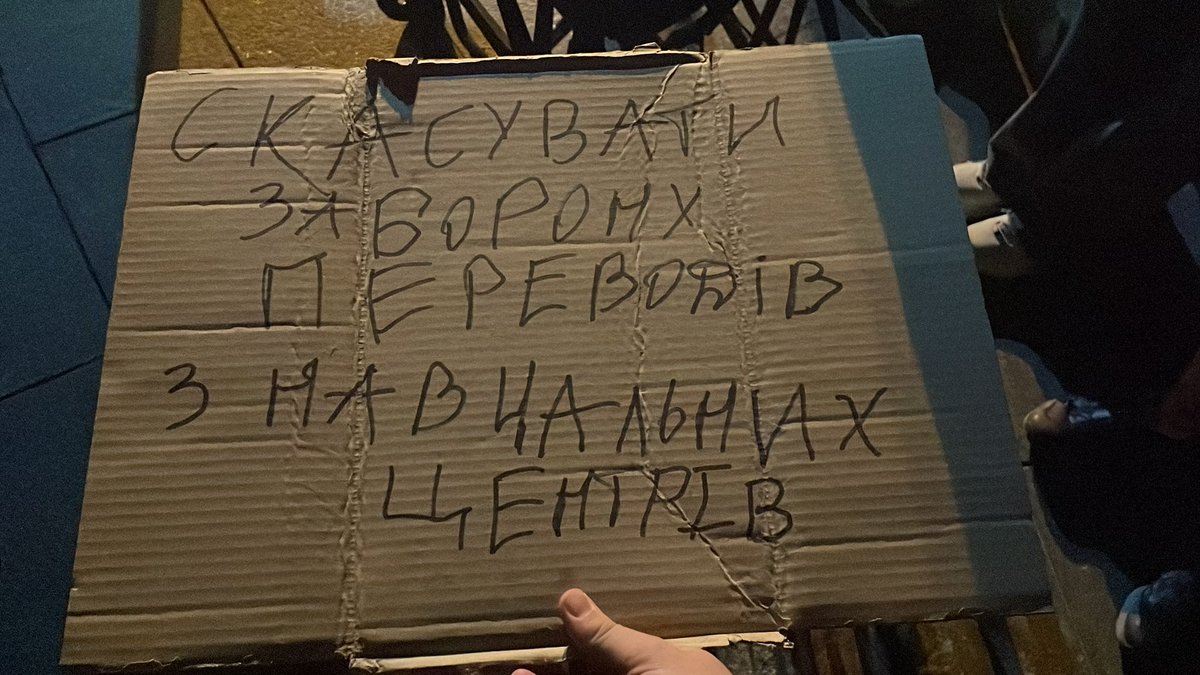 СКАСУВАТИ
ЗАБОРОНУ
ПЕРЕВОДІВ
З НАВЧАЛЬНИХ
ЦЕНТРІВ